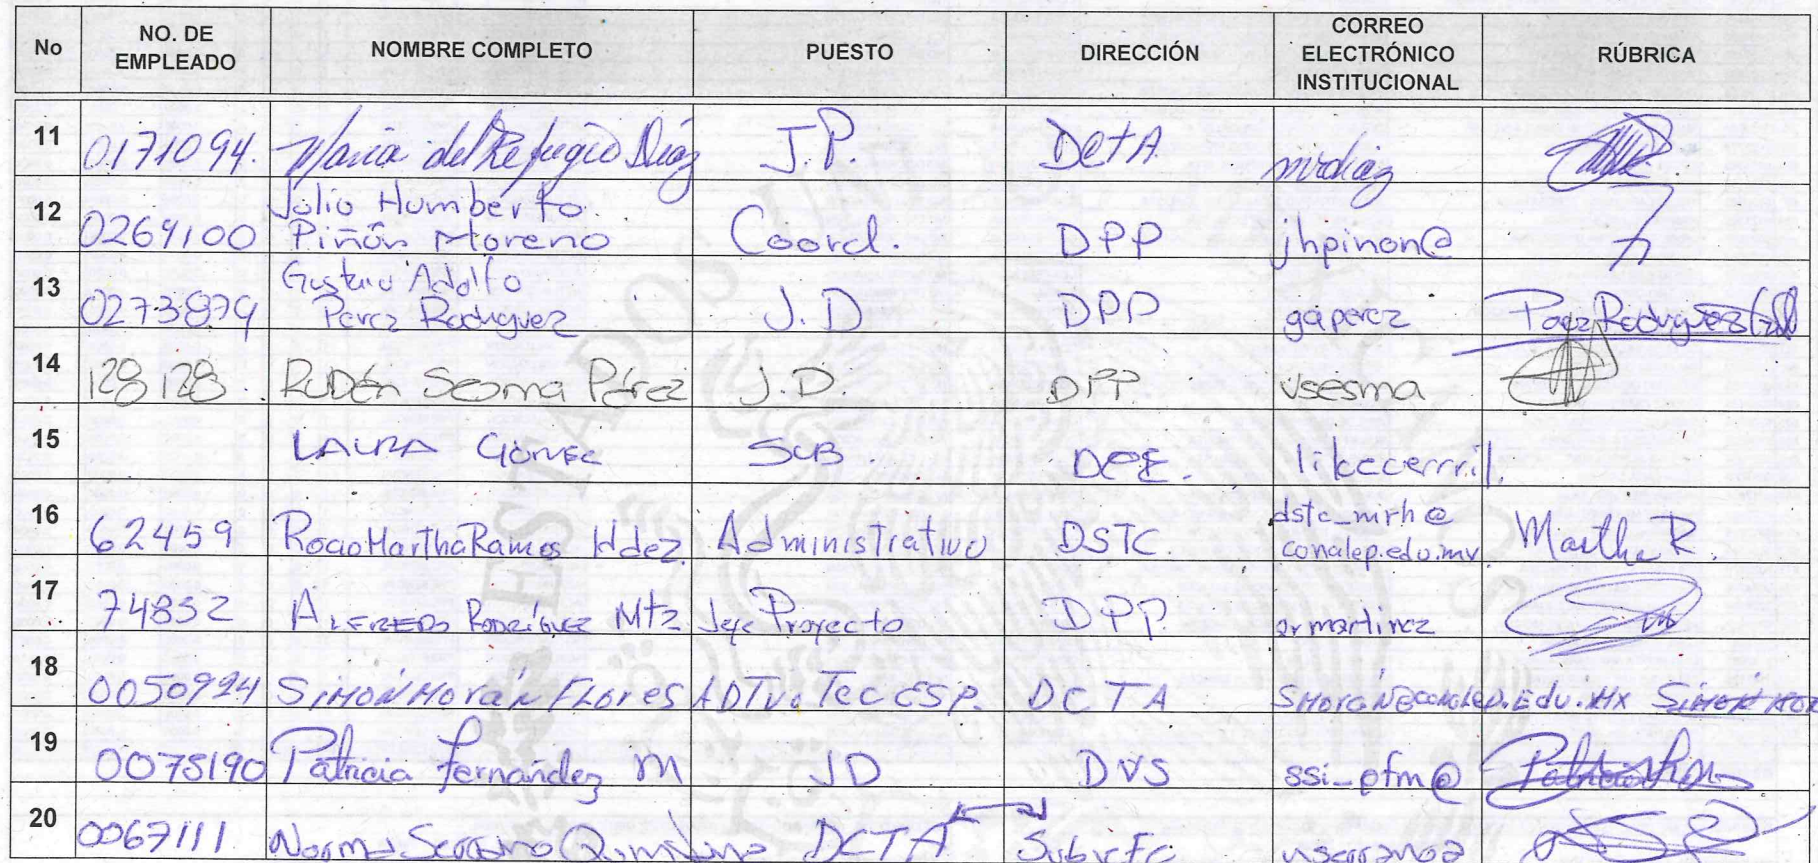 No NO. DE EMPLEADO NOMBRE COMPLETO PUESTO DIRECCIÓN CORREO ELECTRÓNICO INSTITUCIONAL RÚBRICA
11 0171094. Maria del Refugio Diaz J.P. DCTA mrdiaz
12 0269100 Julio Humberto Piñón Moreno Coord. DPP jhpinon@
13 0273879 Gustavo Adolfo Perez Rodriguez J.D DPP gaperez Perez Rodriguez
14 128128. Rubén Sesma Pérez J.D. DPP. vsesma
15 LAURA Gómez SUB likecerril.
16 62459 Rocio Martha Ramos Hdez. Administrativo DSTC. dstc_mirh@ conalep.edu.mx Martha R.
17 74852 ALFREDO RODRÍGUEZ Mtz Jefe Proyecto DPP armartinez
18 0050924 SIMÓN MORáN FLORES ADTVo TEC ESP. DCTA SMORáN@conalep.Edu.MX SIMÓN MOR
19 0075190 Patricia Fernández M JD DVS ssi_pfm@
20 0067111 Norma Serrano DCTA Subjefe
ESTADOS